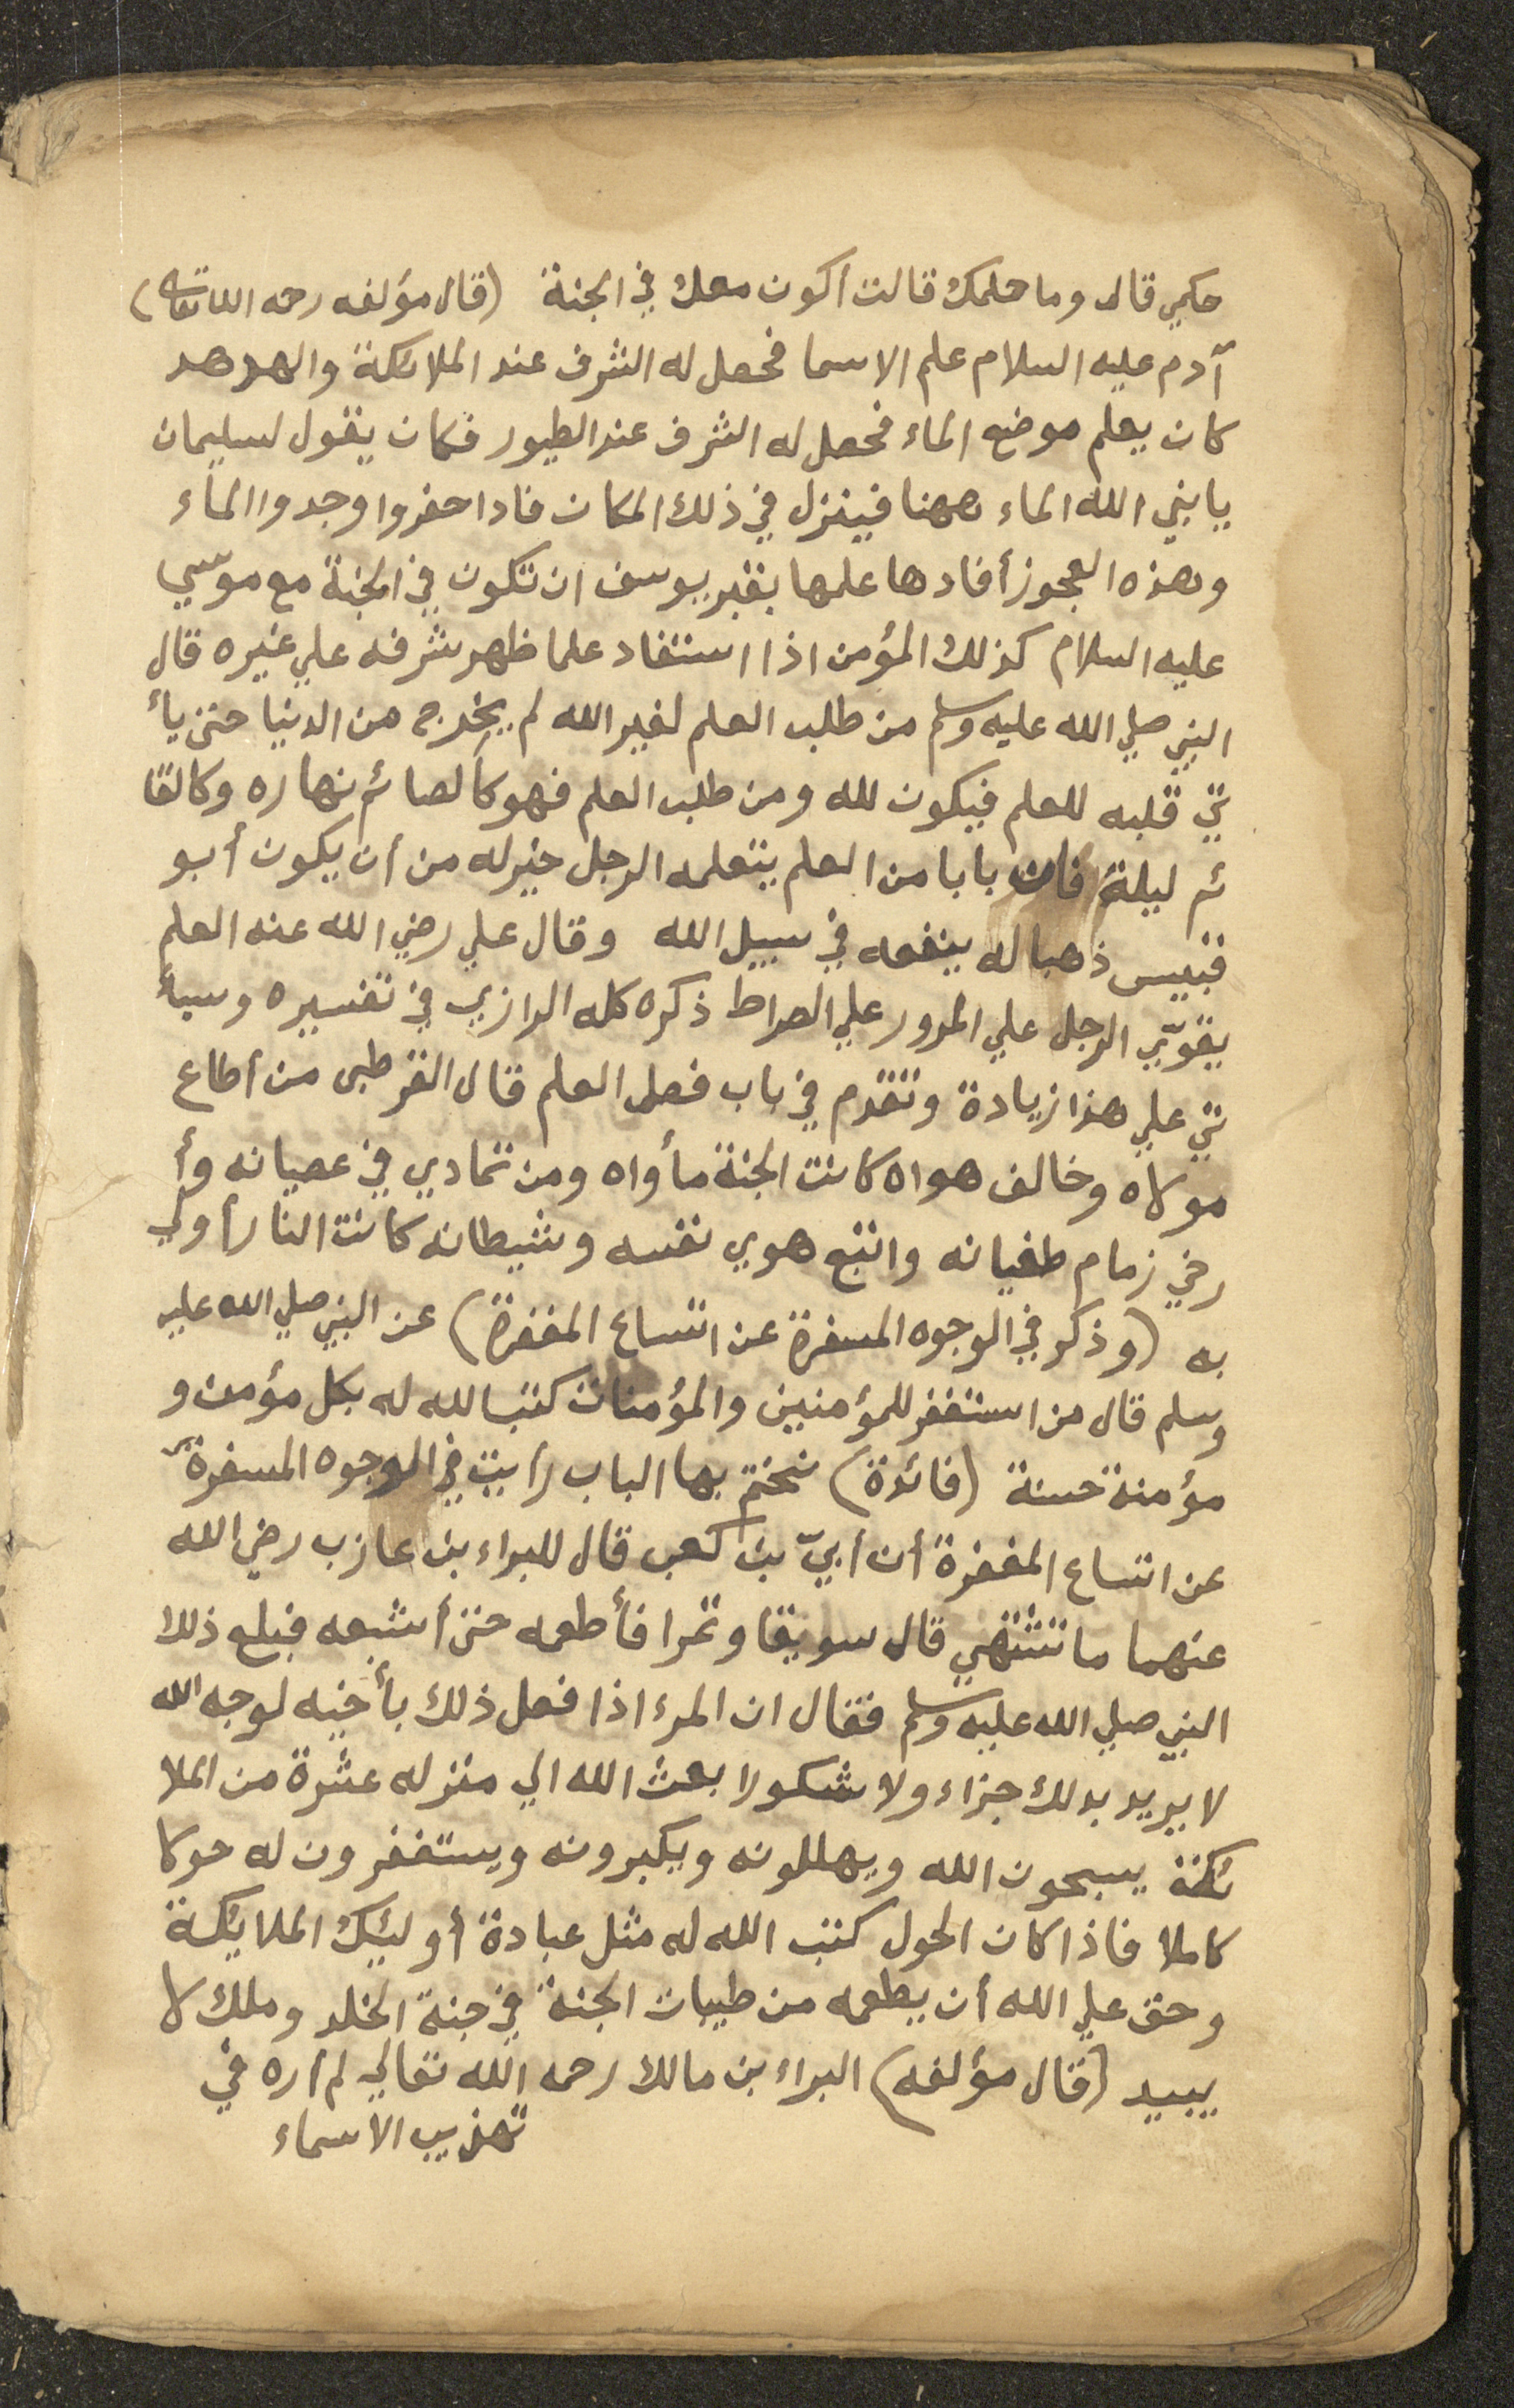 حكمي قال وما حلمك قالت أكون معك في الجنة (قال مؤلفه رحمه الله تعالى)
آدم عليه السلام علم الاسما فحصل له الشرف عند الملائكة والهدهد
كان يعلم موضع الماء فحصل له الشرف عند الطيور فكان يقول لسليمان
يا نبي الله الماء ههنا فينزل في ذلك المكان فاذا حفروا وجدوا الماء
وهذه العجوز أفادها علمها بقبر يوسف ان تكون في الجنة مع موسي
عليه السلام كذلك المؤمن اذا استفاد علما ظهر شرفه علي غيره قال
النبي صلي الله عليه وسلم من طلب العلم لغير الله لم يخرج من الدنيا حتي يأ
تي قلبه للعلم فيكون لله ومن طلب العلم فهو كالصائم نهاره وكالقا
ئم ليلة فان بابا من العلم يتعلمه الرجل خير له من أن يكون أبو
قبيس ذهبا له ينفعه في سبيل الله وقال علي رضي الله عنه العلم
يقوّي الرجل علي المرور علي الصراط ذكره كله الرازي في تفسيره وسيأ
تي علي هذا زيادة وتقدم في باب فصل العلم قال القرطبى من أطاع
مولاه وخالف هواه كانت الجنة مأواه ومن تمادي في عصيانه وأ
رخي زمام طغيانه واتبع هوي نفسه وشيطانه كانت النار أولي
به (وذكر في الوجوه المسفرة عن اتساع المغفرة) عن النبي صلي الله عليه
وسلم قال من استغفر للمؤمنين والمؤمنات كتب الله له بكل مؤمن و
مؤمنة حسنة (فائدة) نختم بها الباب رأيت في الوجوه المسفرة
عن اتساع المغفرة أن أبيّ بن كعب قال للبراء بن عازب رضي الله
عنهما ما تشتهي قال سويقا وتمرا فأطعمه حتي أشبعه فبلع ذلك
النبي صلي الله عليه وسلم فقال ان المرء اذا فعل ذلك بأخيه لوجه الله
لا يريد بدلك جزاء ولا شكورا بعث الله الي منزله عشرة من الملا
ئكة يسبحون الله ويهللونه ويكبرونه ويستغفرون له حوكا
كاملا فاذا كان الحول كتب الله له مثل عبادة أوليئك الملايكة
وحق علي الله أن يطعمه من طيبات الجنة في جنة الخلد وملك لا
يبيد (قال مؤلفه) البراء بن مالك رحمه الله تعالي لم أره في
تهذيب الاسماء